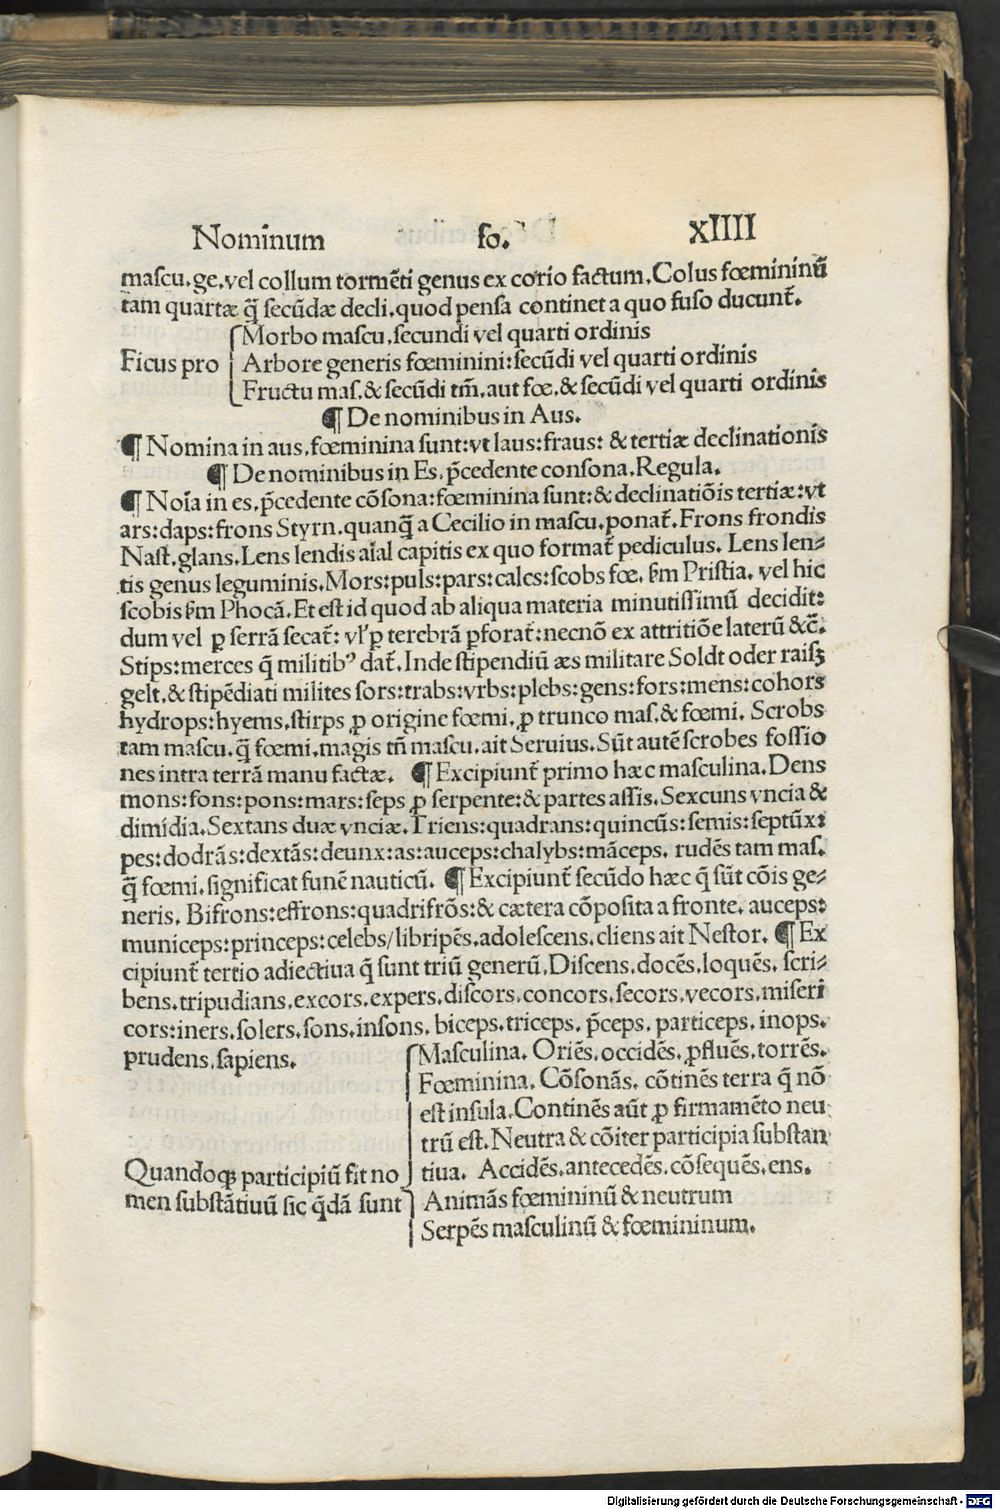 Nominum fo. xIIII
maſcu.ge.vel collum tormēti genus ex corio factum.Colus fœmininū
tam quartæ q̄ ſecūdæ decli.quod penſa continet a quo fuſo ducunt̄.
Morbo maſcu.ſecundi vel quarti ordinis
Ficus pro Arbore generis fœminini:ſecūdi vel quarti ordinis
Fructu maſ.& ſecūdi tm̄.aut fœ.& ſecūdi vel quarti ordinis
¶ De nominibus in Aus.
¶ Nomina in aus.fœminina ſunt:vt laus:fraus: & tertiæ declinationis
¶ De nominibus in Es.p̄cedente conſona.Regula.
¶ Noīa in es.p̄cedente cōſona:fœminina ſunt:& declinatiōis tertiæ:vt
ars:daps:frons Styrn.quanq̄ a Cecilio in maſcu.ponat̄.Frons frondis
Naſt.glans.Lens lendis aīal capitis ex quo format̄ pediculus. Lens len⸗
tis genus leguminis.Mors:puls:pars:calcs:ſcobs fœ. ẜm Priſtia. vel hic
ſcobis ẜm Phocā.Et eſt id quod ab aliqua materia minutiſſimū decidit:
dum vel ꝑ ſerrā ſecat̄: vl' ꝑ terebrā ꝑforat̄:necnō ex attritiōe laterū &c̄.
Stips:merces q̄ militibꝰ dat̄.Inde ſtipendiū æs militare Soldt oder raiſz
gelt.& ſtipēdiati milites ſors:trabs:vrbs:plebs:gens:fors:mens:cohors
hydrops:hyems.ſtirps ꝓ origine fœmi.ꝓ trunco maſ.& fœmi. Scrobs
tam maſcu.q̄ fœmi.magis tn̄ maſcu.ait Seruius.Sūt autē ſcrobes foſſio
nes intra terrā manu factæ. ¶ Excipiunt̄ primo hæc maſculina.Dens
mons:fons:pons:mars:ſeps ꝓ ſerpente:& partes aſſis.Sexcuns vncia &
dimidia.Sextans duæ vnciæ.Triens:quadrans:quincūs:ſemis:ſeptūx:
pes:dodrās:dextās:deunx:as:auceps:chalybs:māceps. rudēs tam maſ.
q̄ fœmi.ſignificat funē nauticū. ¶ Excipiunt̄ ſecūdo hæc q̄ ſūt cōis ge⸗
neris. Bifrons:effrons:quadrifrōs:& cætera cōpoſita a fronte. auceps:
municeps:princeps:celebs/libripēs.adoleſcens.cliens ait Neſtor. ¶ Ex
cipiunt̄ tertio adiectiua q̄ ſunt triū generū.Diſcens.docēs.loquēs. ſcri⸗
bens.tripudians.excors.expers.diſcors.concors.ſecors.vecors.miſeri
cors:iners.ſolers.ſons.inſons. biceps.triceps. p̄ceps. particeps. inops.
prudens.ſapiens. Maſculina. Oriēs.occidēs. ꝓfluēs.torrēs.
Fœminina. Cōſonās. cōtinēs terra q̄ nō
eſt inſula.Continēs aūt ꝓ firmamēto neu
trū eſt.Neutra & cōiter participia ſubſtan
Quandoqꝫ participiū fit no tiua. Accidēs.antecedēs.cōſequēs.ens.
men ſubſtātiuū ſic q̄dā ſunt Animās fœmininū & neutrum
Serpēs maſculinū & fœmininum.
Digitalisierung gefördert durch die Deutsche Forschungsgemeinschaft - DFG